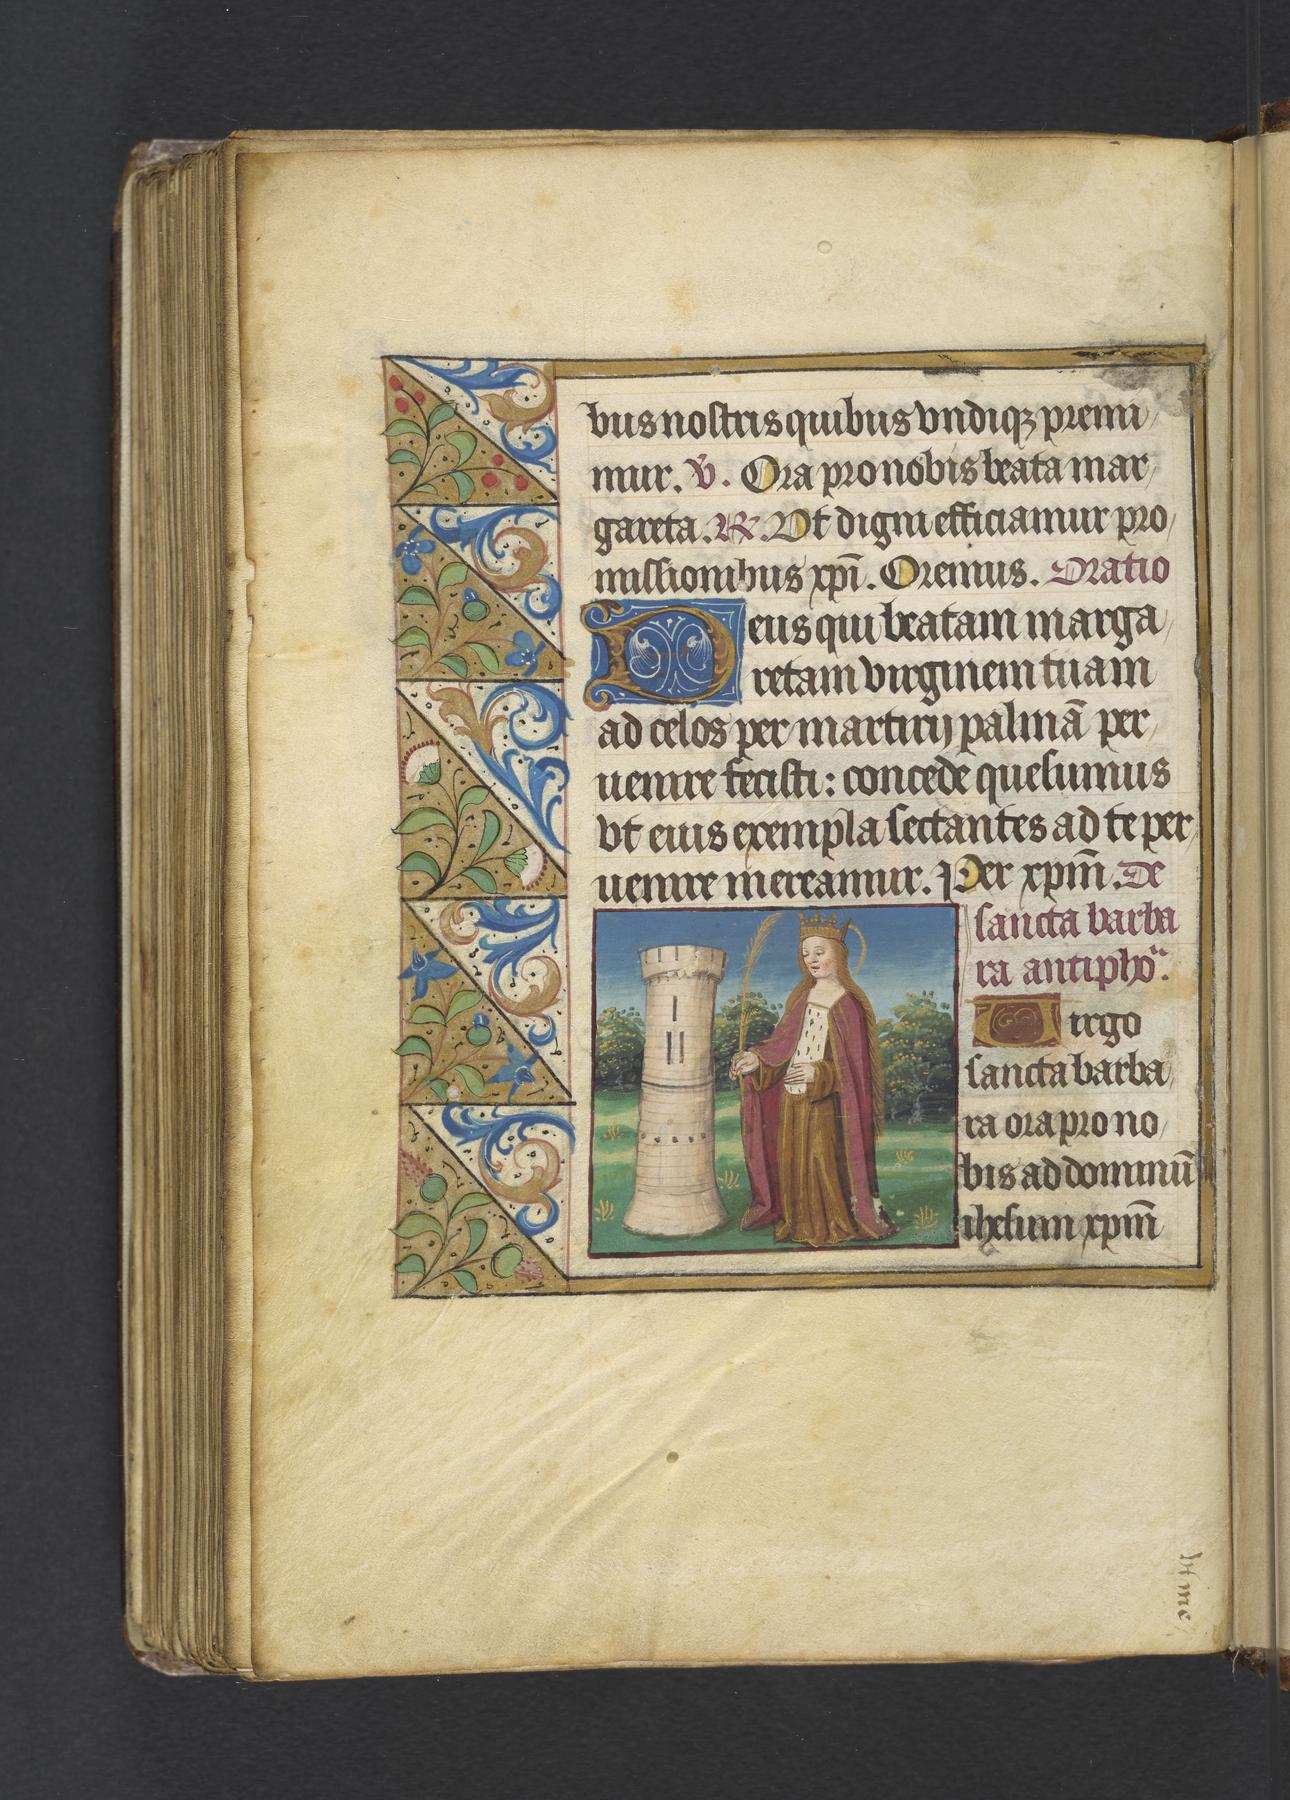 bus nostris quibus vndiqꝫ premi
mur. ℣. Ora pro nobis beata mar
gareta. ℟. Vt digni efficiamur pro
missionibus xp̄i. Oremus. Oratio
Deus qui beatam marga
retam virginem tuam
ad celos per martirij palmā per
uenire fecisti: concede quesumus
vt eius exempla sectantes ad te per
uenire mereamur. Per xp̄m. De
sancta barba
ra antiphoᵃ.
Virgo
sancta barba
ra ora pro no
bis ad dominū
ihesum xp̄m